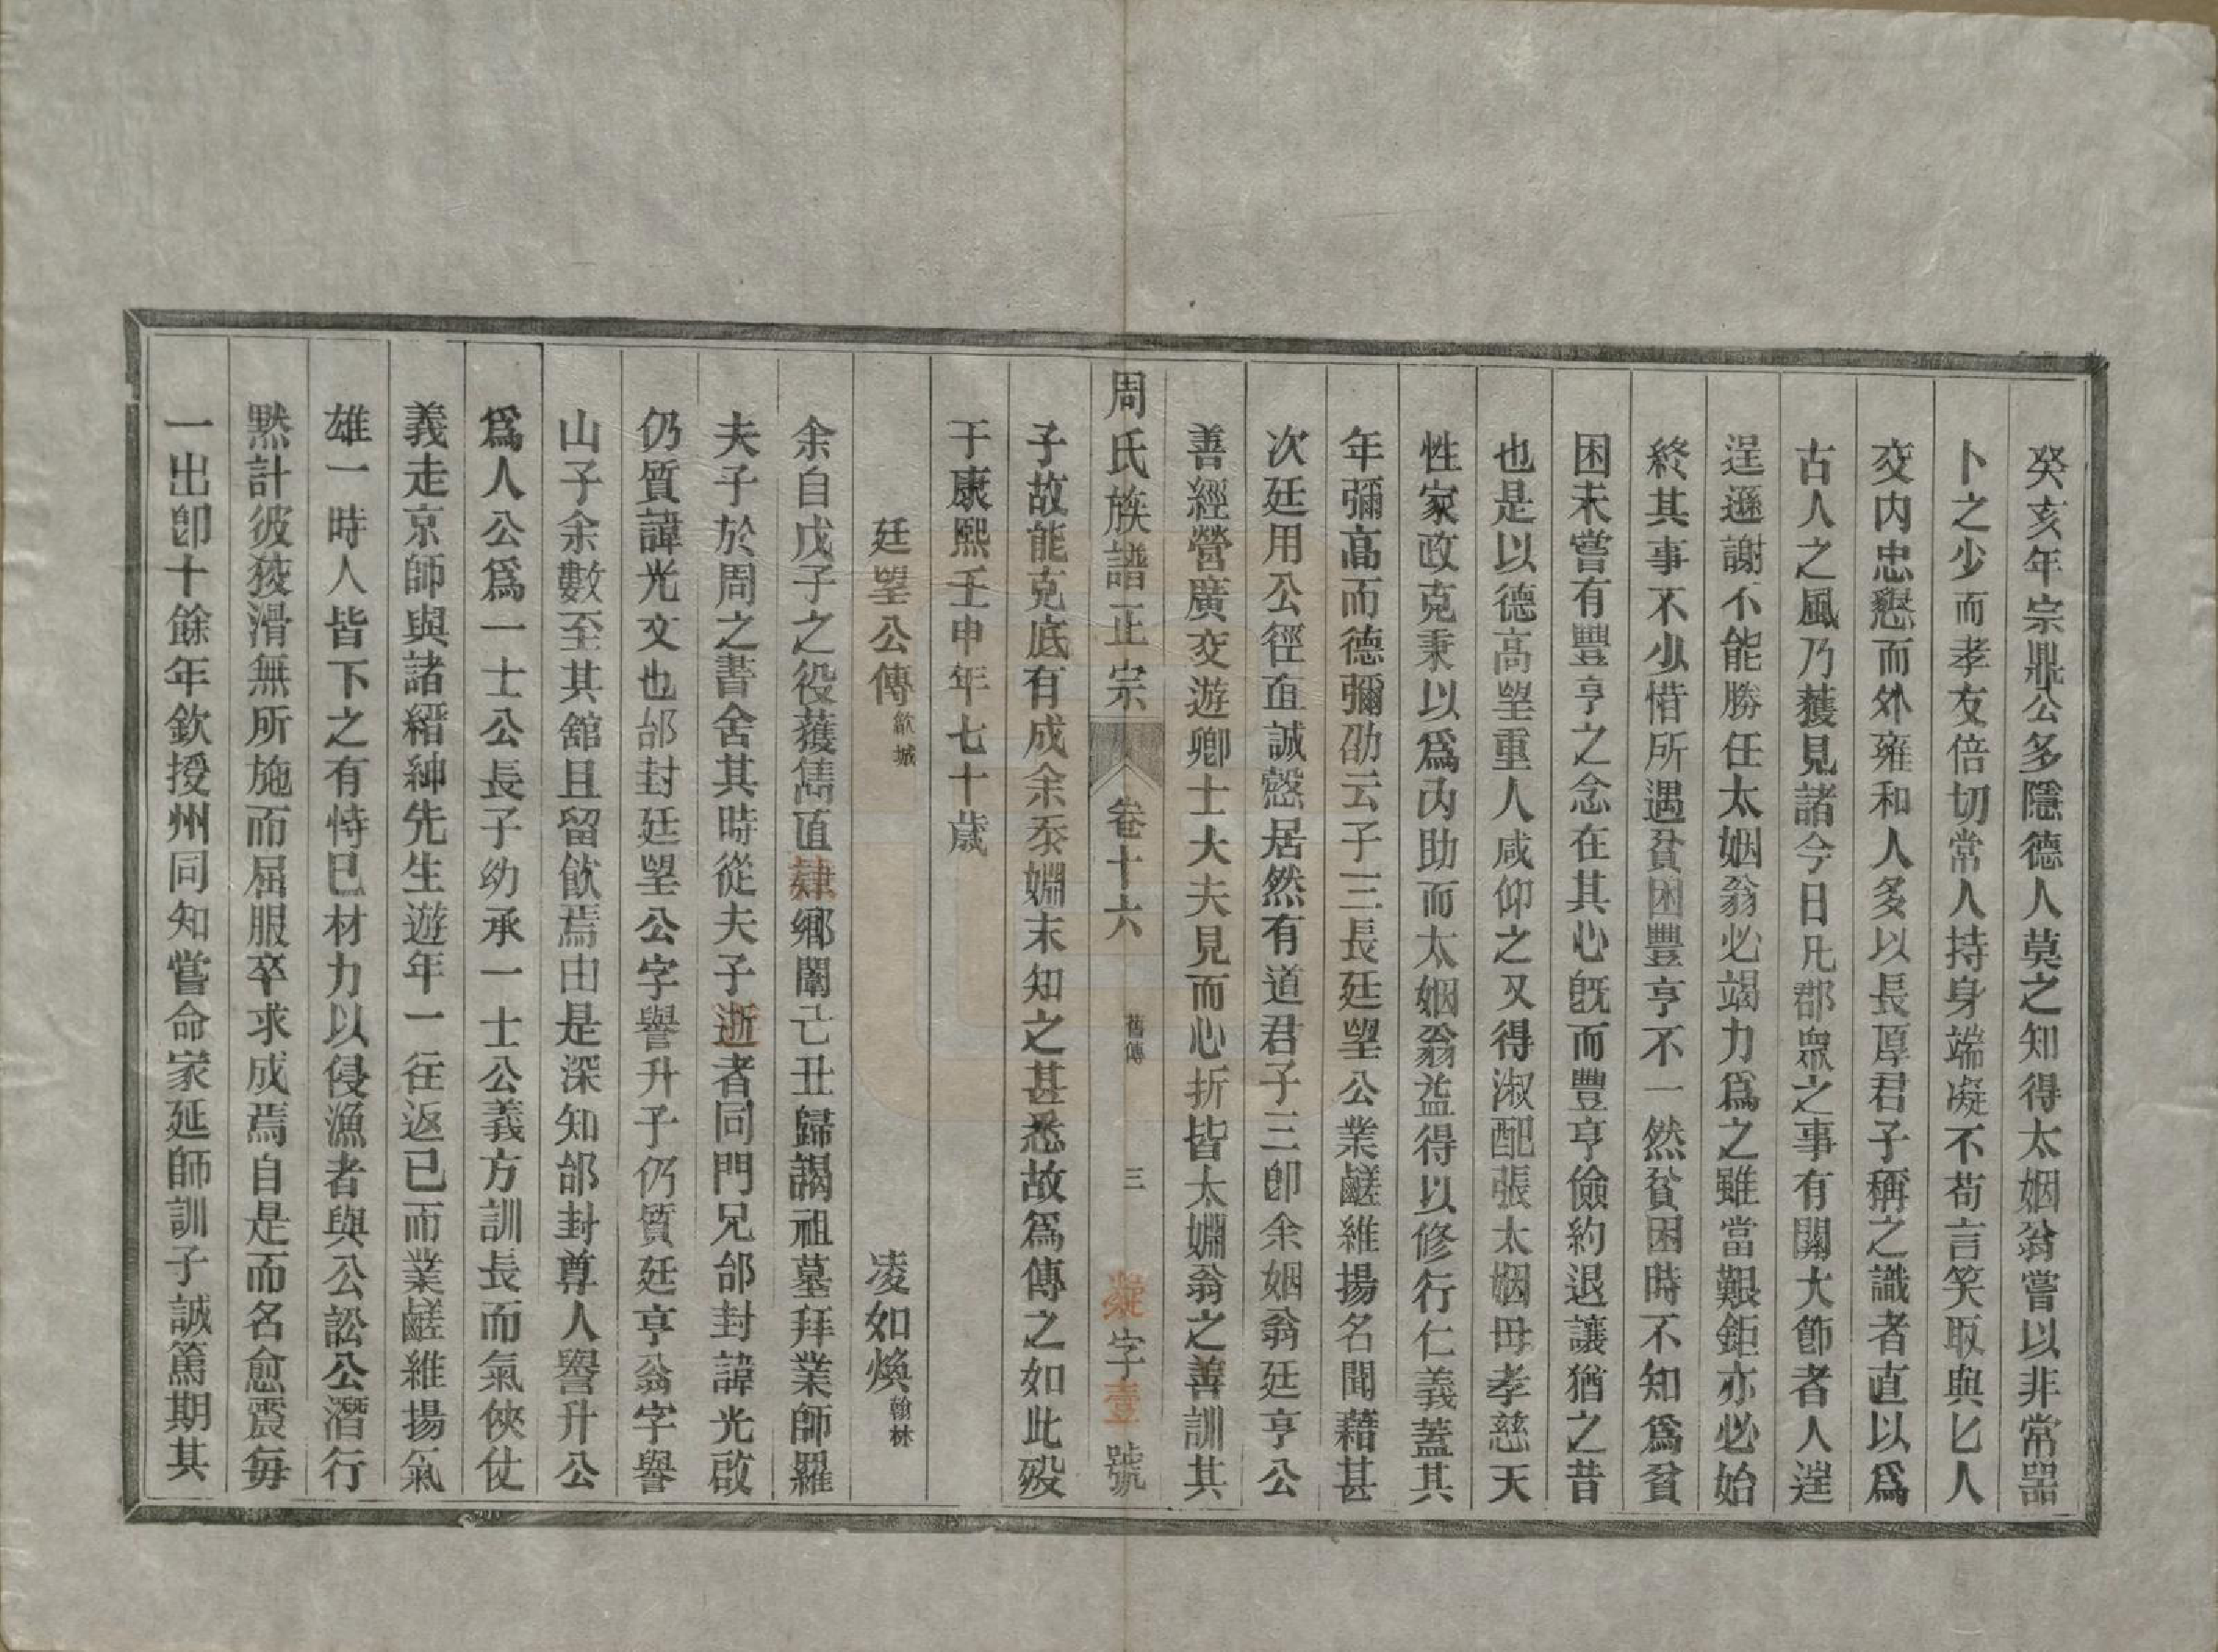 癸亥年宗鼎公多隱德人莫之知得太姻翁嘗以非常器
卜之少而孝友倍切常人持身端凝不苟言笑取與匕人
交内忠懇而外雍和人多以長厚君子稱之識者直以爲
古人之風乃獲見諸今日凡郡衆之事有關大節者人逞
逞遜謝不能勝任太姻翁必竭力爲之雖當艱鉅亦必始
終其事不少惜所遇貧困豐亨不一然貧困時不知爲貧
困未嘗有豐亨之念在其心旣而豐亨儉約退讓猶之昔
也是以德高望重人咸仰之又得淑配張太姻毋孝慈天
性家政克秉以爲内助而太姻翁益得以修行仁義蓋其
年彌高而德彌劭云子三長廷望公業鹺維揚名聞藉甚
次廷用公徑直誠慤居然有道君子三即余姻翁廷亨公
善經營廣交遊卿士大夫見而心折皆太姻翁之善訓其
子故能克底有成余忝姻末知之甚悉故爲傳之如此歿
于康熙壬申年七十歲
周氏族譜正宗 卷十六 舊傳 三 凝字壹號
廷望公傳 歙城 凌如焕 翰林
余自戊子之役獲雋直肄鄉闈己丑歸謁祖墓拜業師羅
夫子於周之書舍其時從夫子逝者同門兄邰封諱光啟
仍質諱光文也邰封廷望公字譽升子仍質廷亨翁字譽
山子余數至其舘且留飲焉由是深知邰封尊人譽升公
爲人公爲一士公長子幼承一士公義方訓長而氣俠仗
義走京師與諸縉紳先生遊年一往返已而業鹺維揚氣
雄一時人皆下之有恃已材力以侵漁者與公訟公潛行
黙計彼狡滑無所施而屈服卒求成焉自是而名愈震毎
一出卽十餘年欽授州同知嘗命家延師訓子誠篤期其